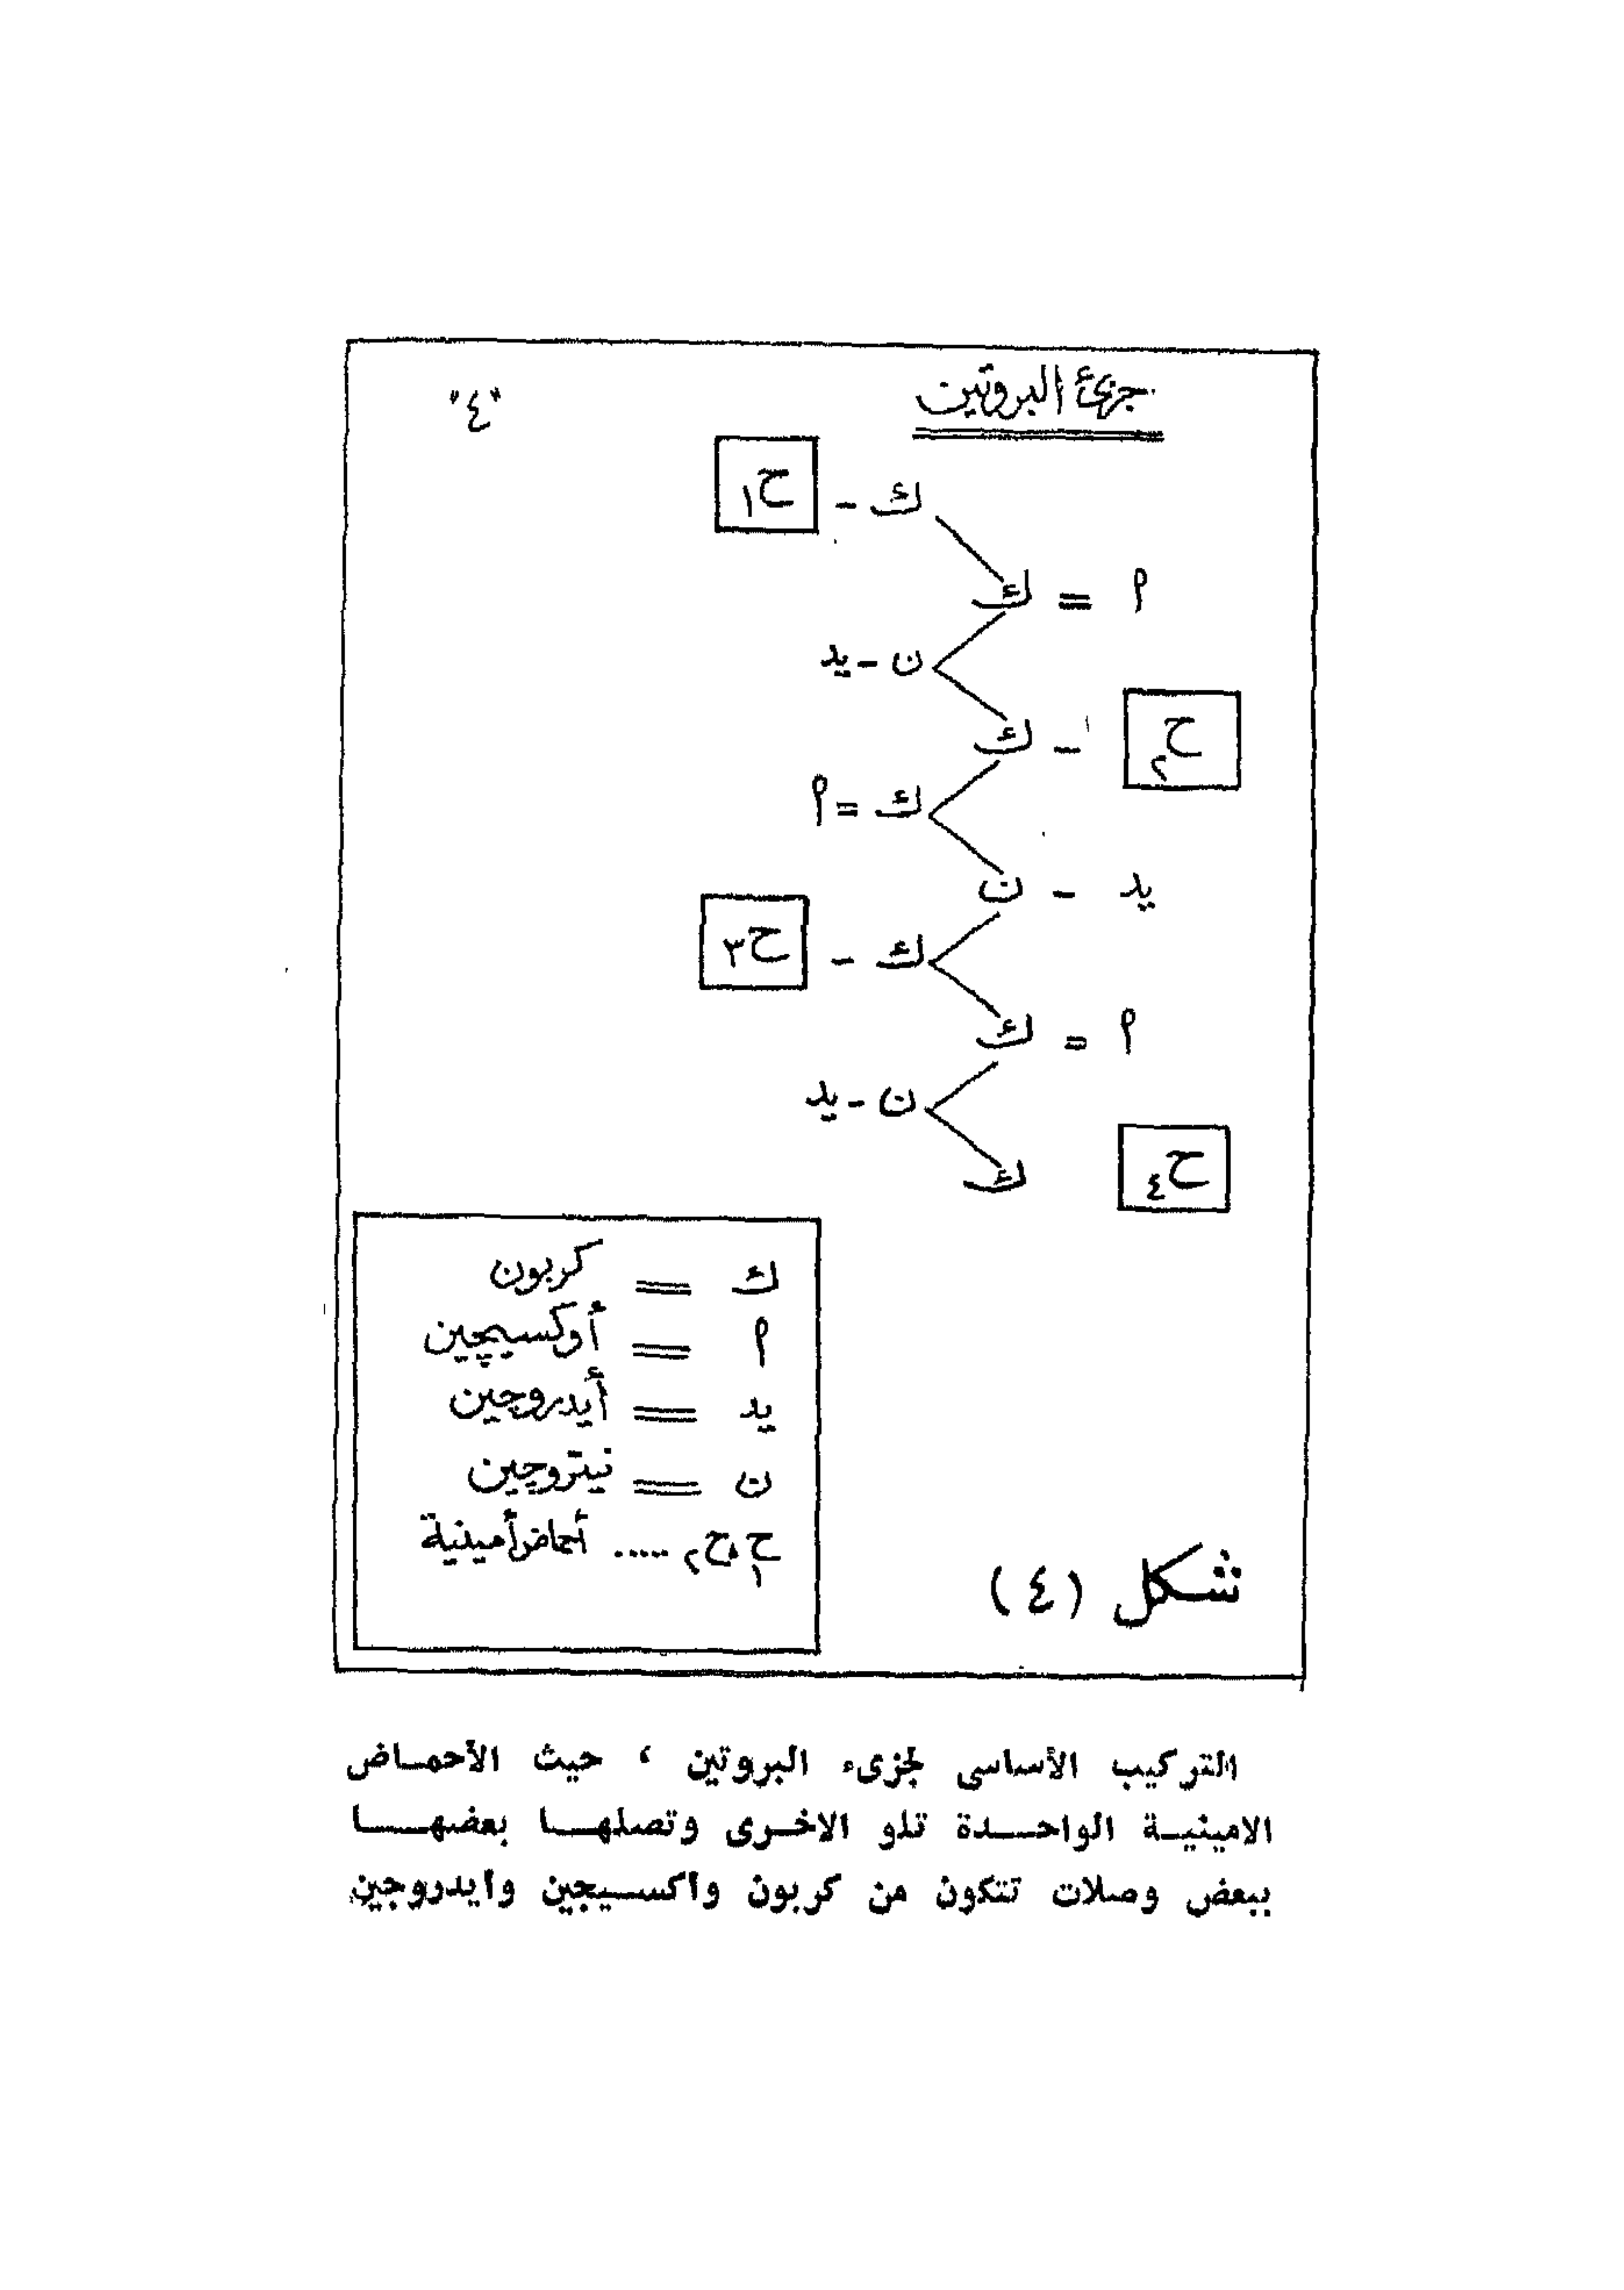 جزئ البروتين "٤"
ك - ح١
ا = ك
ن - يد
ح٢ - ك
ك = ا
يد - ن
ك - ح٣
ا = ك
ن - يد
ح٤ ك
ك = كربون
ا = أوكسيچين
يد = أيدروجين
ن = نيتروجين
ح١، ح٢ ..... أحماض أمينية
شكل (٤)
التركيب الأساسى لجزىء البروتين ، حيث الأحماض
الامينية الواحدة تلو الاخرى وتصلها بعضها
ببعض وصلات تتكون من كربون وأكسيجين وأيدروجين